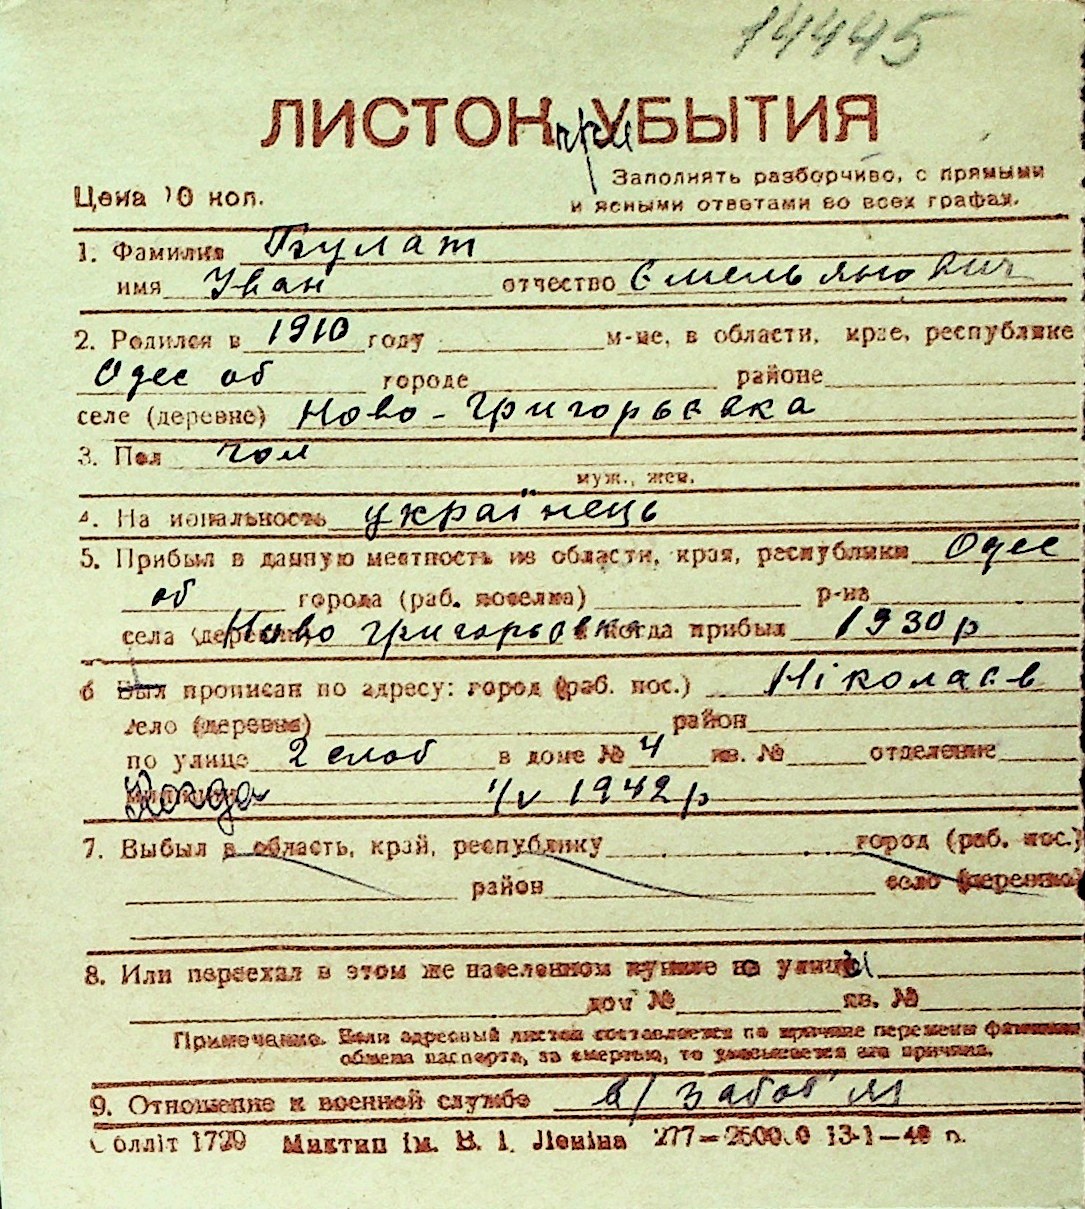 14445
ЛИСТОК при УБЫТИЯ
Цена 10 коп.
Заполнять разборчиво, с прямыми
и ясными ответами во всех графах.
1. Фамилия Булат
имя Іван отчество Омельянович
2. Родился в 1910 году м-це, в области, крае, республике
Одес об городе районе
селе (деревне) Ново-Григорьевка
3. Пол чол
муж., жен.
4. На иональность українець
5. Прибыл в данную местность из области, края, республики Одес
об города (раб. поселка) р-на
села (деревни) Ново Григорьевка когда прибыл 1930 р
6 Был прописан по адресу: город (раб. пос.) Ніколаєв
село (деревня) район
по улице 2 слоб в доме № 4 кв. № отделение
Когда 1/V 1942 р
7. Выбыл в область, край, республику город (раб. пос.)
район село (деревню)
8. Или переехал в этом же населенном пункте на улицы
дом № кв. №
Примечание. Если адресный листок составляется по причине перемены фамилии
обмена паспорта, за смертью, то указывается эта причина.
9. Отношение к военной службе в/забов'яз
олліт 1729 Миктип ім. В. І. Леніна 277—250000 13-1—40 р.